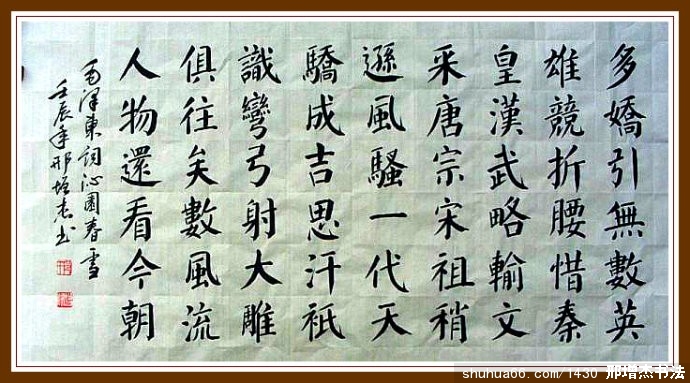 多嬌引無數英
雄競折腰惜秦
皇漢武略輸文
采唐宗宋祖稍
遜風騷一代天
驕成吉思汗祇
識彎弓射大雕
俱往矣數風流
人物還看今朝
毛澤東詞沁園春雪
壬辰年邢增杰书
shuhua66.com/1430 邢增杰书法